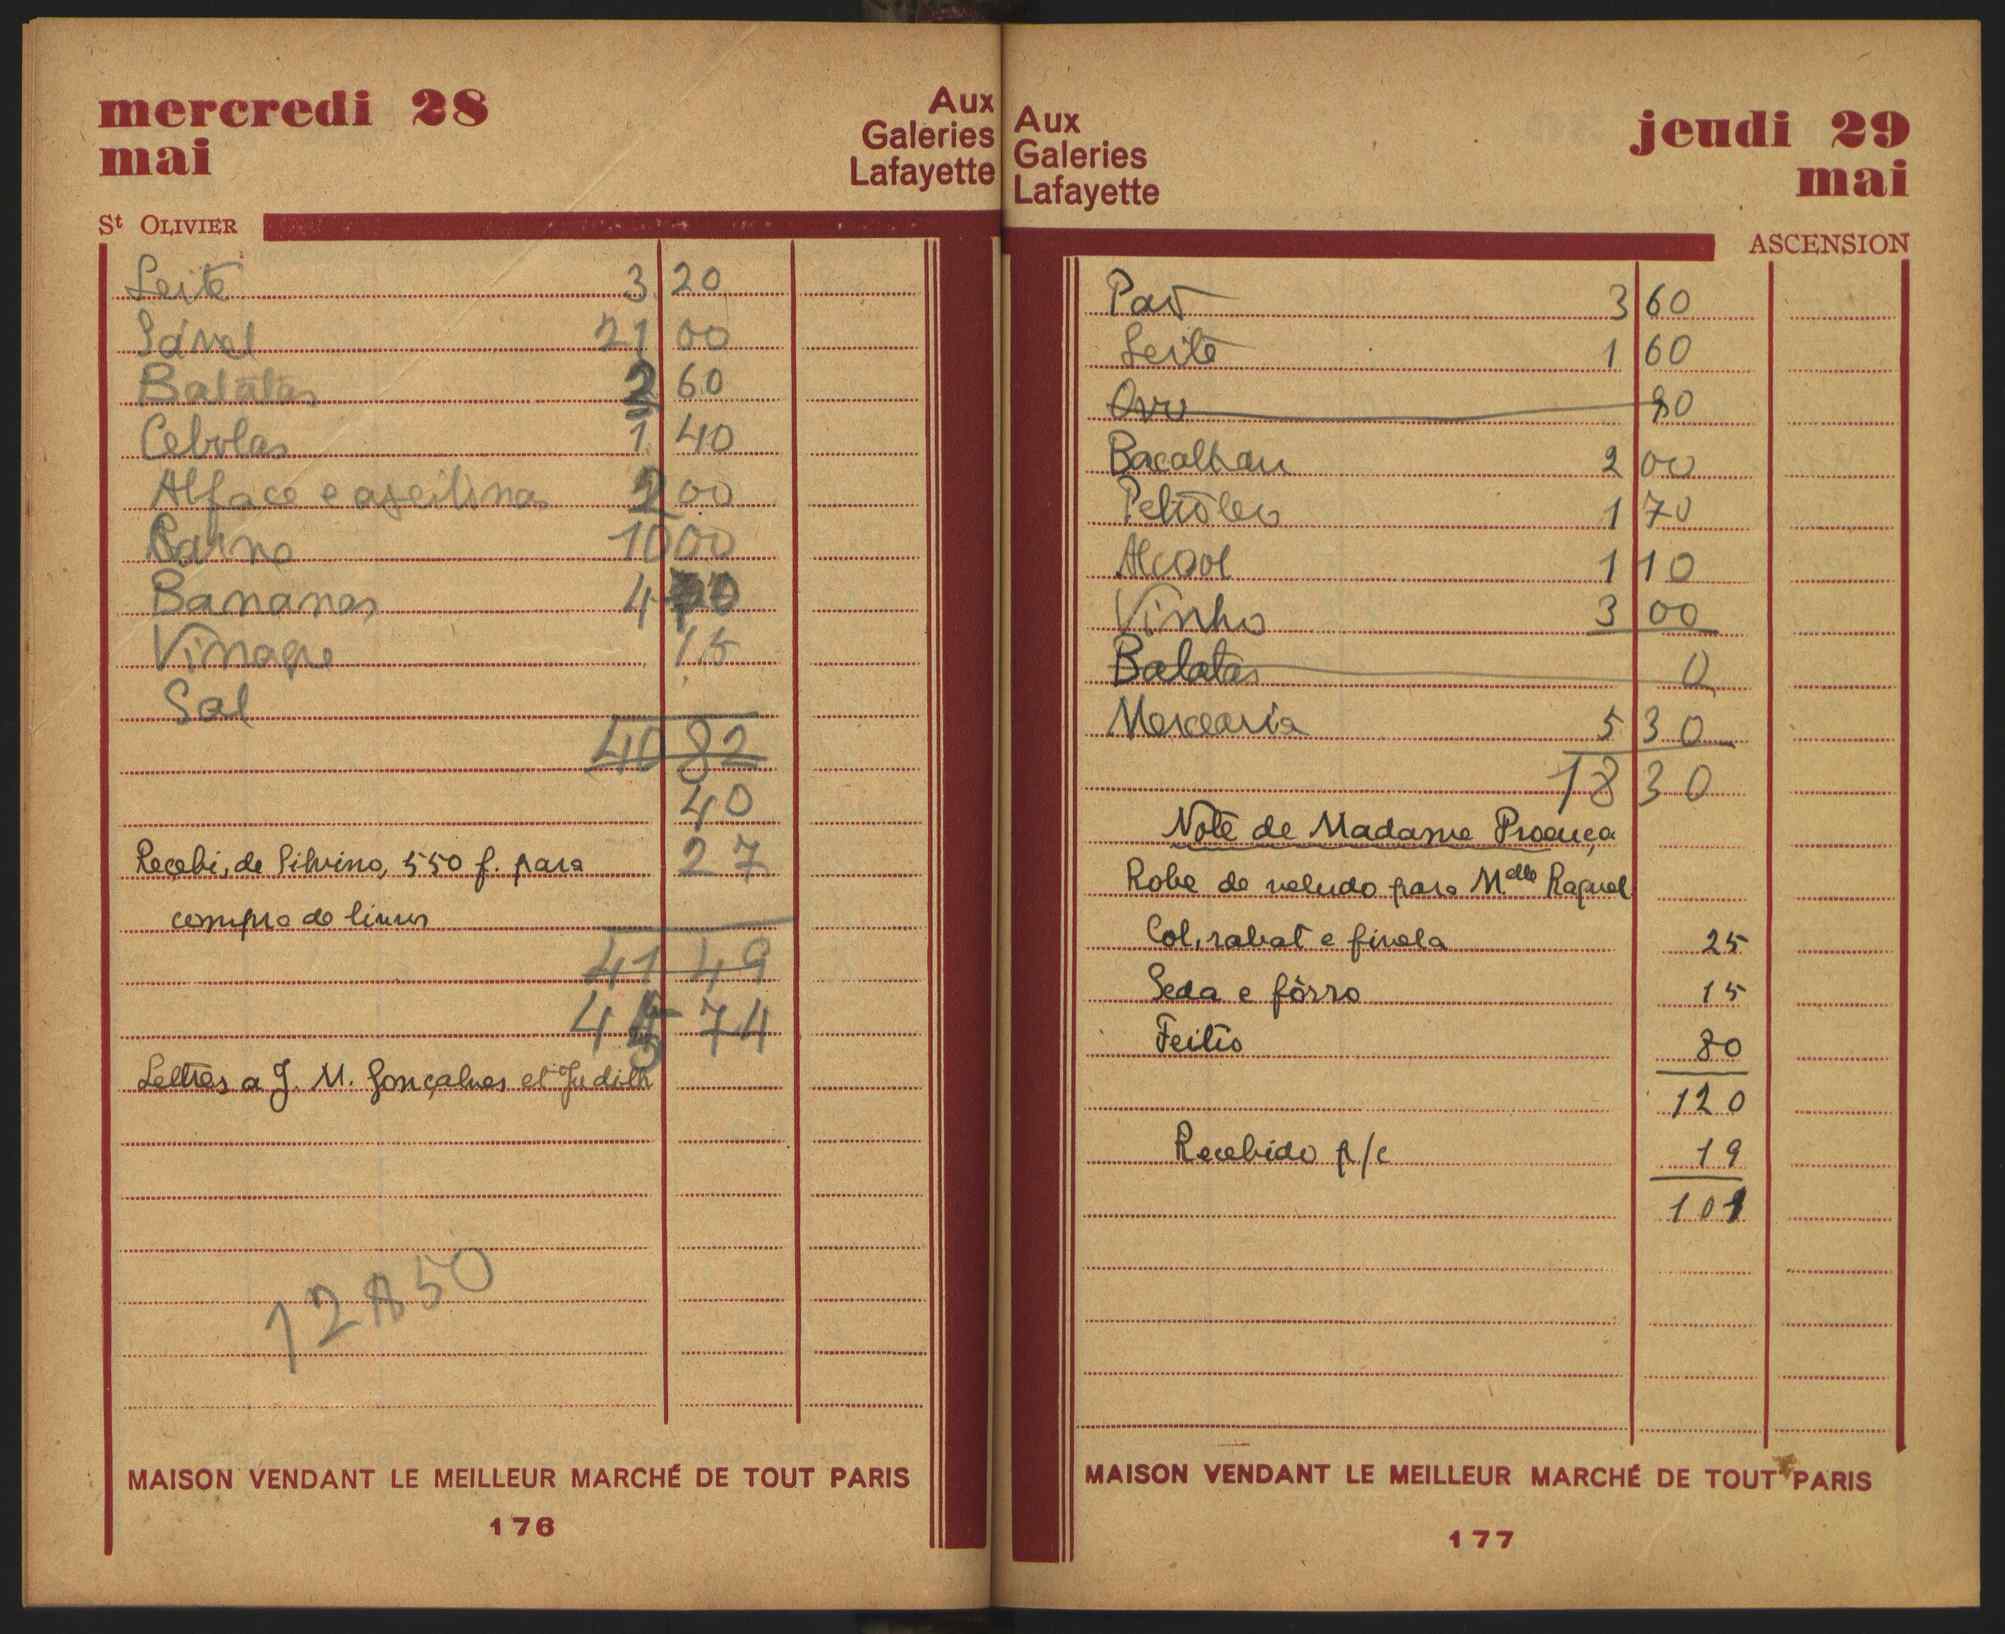 mercredi 28
mai
Aux
Galeries
Lafayette
St OLIVIER
Leite 3 20
Sável 21 00
Batatas 2 60
Cebolas 1 40
Alface e azeitonas 2 00
10 00
Bananas 4
Vinagre 15
Sal
40 82
40
Recebi, de Silvino, 550 f. para 27
compra de livros
41 49
74
Lettres a J. M. Gonçalves et Judith
50
MAISON VENDANT LE MEILLEUR MARCHÉ DE TOUT PARIS
176
Aux
Galeries
Lafayette
jeudi 29
mai
ASCENSION
Pão 3 60
Leite 1 60
Ovo 80
Bacalhau 2 00
Petróleo 1 70
Alcool 1 10
Vinho 3 00
Batatas 0
Mercearia 5 30
18 30
Note de Madame Proença
Robe de veludo para M.elle Raquel
Col, rabat e fivela 25
Seda e fôrro 15
Feitio 80
120
Recebido p/c 19
101
MAISON VENDANT LE MEILLEUR MARCHÉ DE TOUT PARIS
177